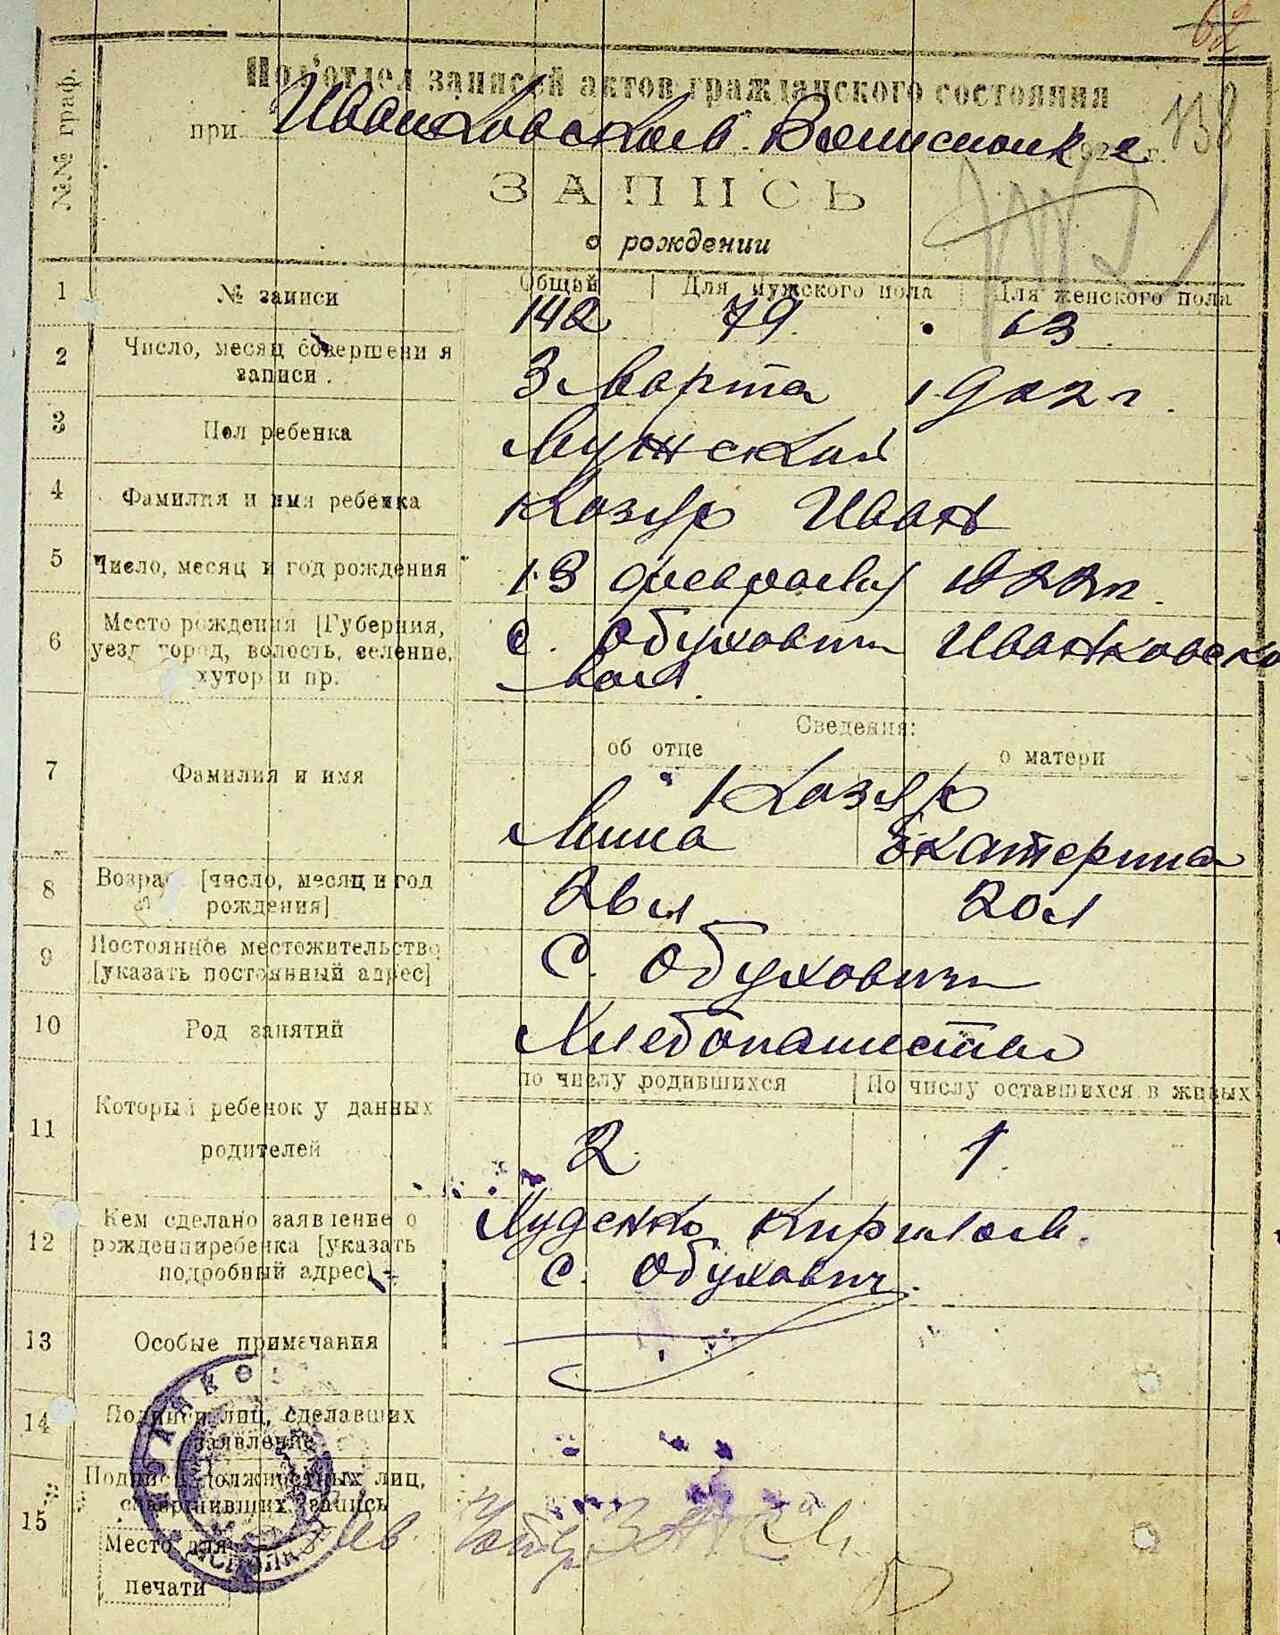 62
138
№№ граф.
Под'отдел записей актов гражданского состояния
при Иванковском Волисполк 192 2 г.
ЗАПИСЬ
о рождении
1 № записи Общий Для мужского пола Для женского пола
142 79. 63
2 Число, месяц совершени я записи.
3 Марта 1922 г.
3 Пол ребенка Мужской
4 Фамилия и имя ребенка Козяр Иван
5 Число, месяц и год рождения 13 февраля 1922 г.
6 Место рождения [Губерния,
уезд город, волость, селение,
хутор и пр.
с. Обуховичи Иванковско
вол.
Сведения:
об отце о матери
7 Фамилия и имя Козяр
Мина Екатерина
8 Возраст [число, месяц и год
рождения]
26 л 20 л
9 Постоянное местожительство
[указать постоянный адрес]
С. Обуховичи
10 Род занятий Хлебопашество
11 Который ребенок у данных
родителей
по числу родившихся По числу оставшихся в живых
2 1
12 Кем сделано заявление о
рождении ребенка [указать
подробный адрес]
Кирилом.
с. Обухович.
13 Особые примечания
14 Подписи лиц, сделавших
заявление
15 Подписи должностных лиц,
совершивших запись
Место для
печати